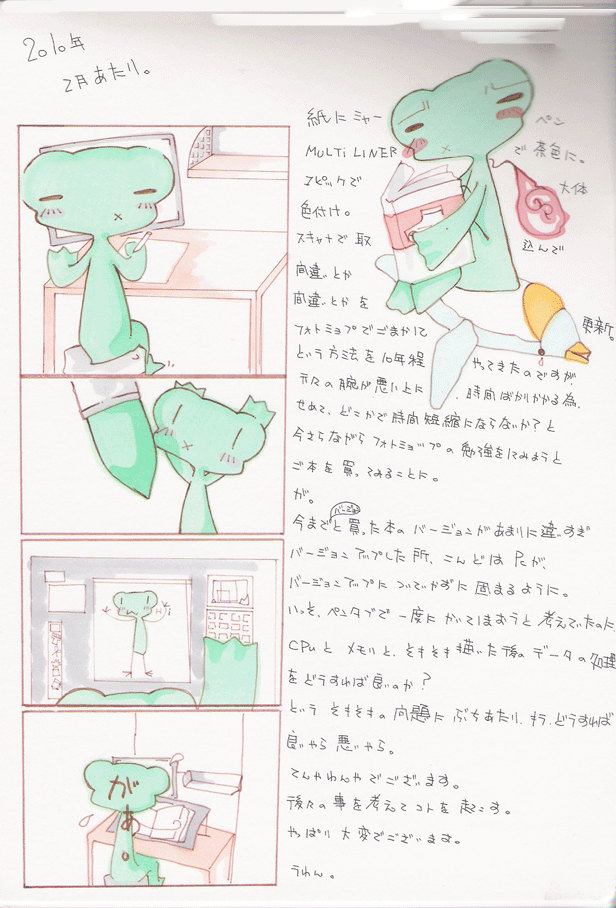 2010年
2月あたり。
紙にシャーペン
MULTi LINERで茶色に。
コピックで大体
色付け。
スキャナで取込んで
間違いとか
間違いとかを
フォトショップでごまかして更新。
という方法を10年程やってきたのですが
元々の腕が悪い上に、時間ばかりかかる為、
せめて、どこかで時間短縮にならないか?と
今さらながらフォトショップの勉強をしてみようと
ご本を買ってみることに。
が。
今までと買った本のバージョンがあまりに違いすぎ
バージョン
バージョンアップした所、こんどはPCが、
バージョンアップについていかずに固まるように。
いっそ、ペンタブで一度にかいてしまおうと考えていたのに、
CPUとメモリと、そもそも描いた後のデータの処理
をどうすれば良いのか?
というそもそもの問題にぶちあたり、もう、どうすれば
良いやら悪いやら。
てんやわんやでございます。
後々の事を考えてコトを起こす。
やっぱり大変でございます。
うわん。
があ。